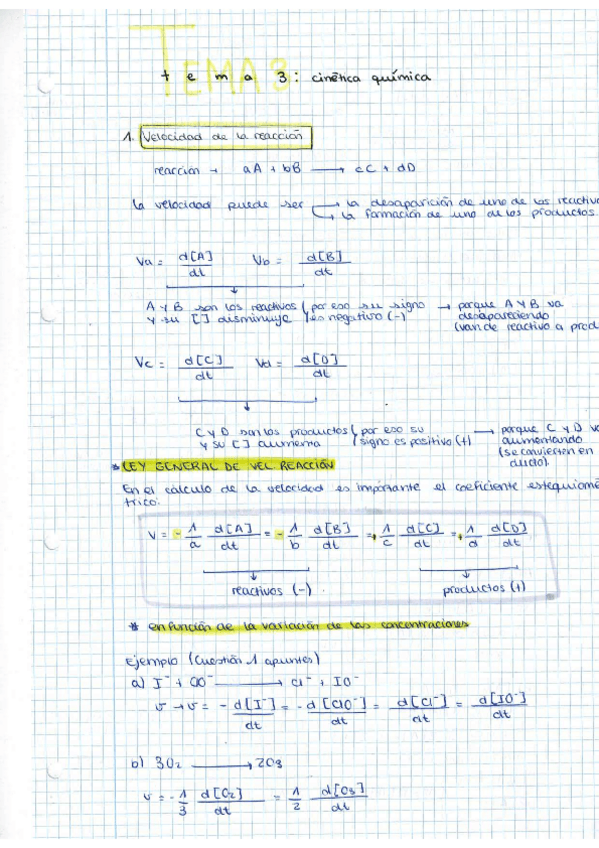 Tema 3: cinética química
1. Velocidad de la reacción
reacción → aA + bB → cC + dD
la velocidad puede ser → la desaparición de uno de los reactivo
→ la formación de uno de los productos.
Va = d[A]/dt Vb = d[B]/dt
A y B son los reactivos y su [ ] disminuye ( por eso su signo es negativo (-) → porque A y B va
desapareciendo
(van de reactivo a prod
Vc = d[C]/dt Vd = d[D]/dt
C y D son los productos y su [ ] aumenta ( por eso su signo es positivo (+) → porque C y D v
aumentando
(se convierten en
ducto).
* LEY GENERAL DE VEL. REACCIÓN
En el cálculo de la velocidad es importante el coeficiente estequiomé
trico:
V = - 1/a d[A]/dt = - 1/b d[B]/dt = + 1/c d[C]/dt = + 1/d d[D]/dt
reactivos (-) productos (+)
* en función de la variación de las concentraciones
Ejemplo (Cuestión 1 apuntes)
a) I⁻ + ClO⁻ → Cl⁻ + IO⁻
v → v = - d[I⁻]/dt = - d[ClO⁻]/dt = d[Cl⁻]/dt = d[IO⁻]/dt
b) 3O₂ → 2O₃
v = - 1/3 d[O₂]/dt = 1/2 d[O₃]/dt